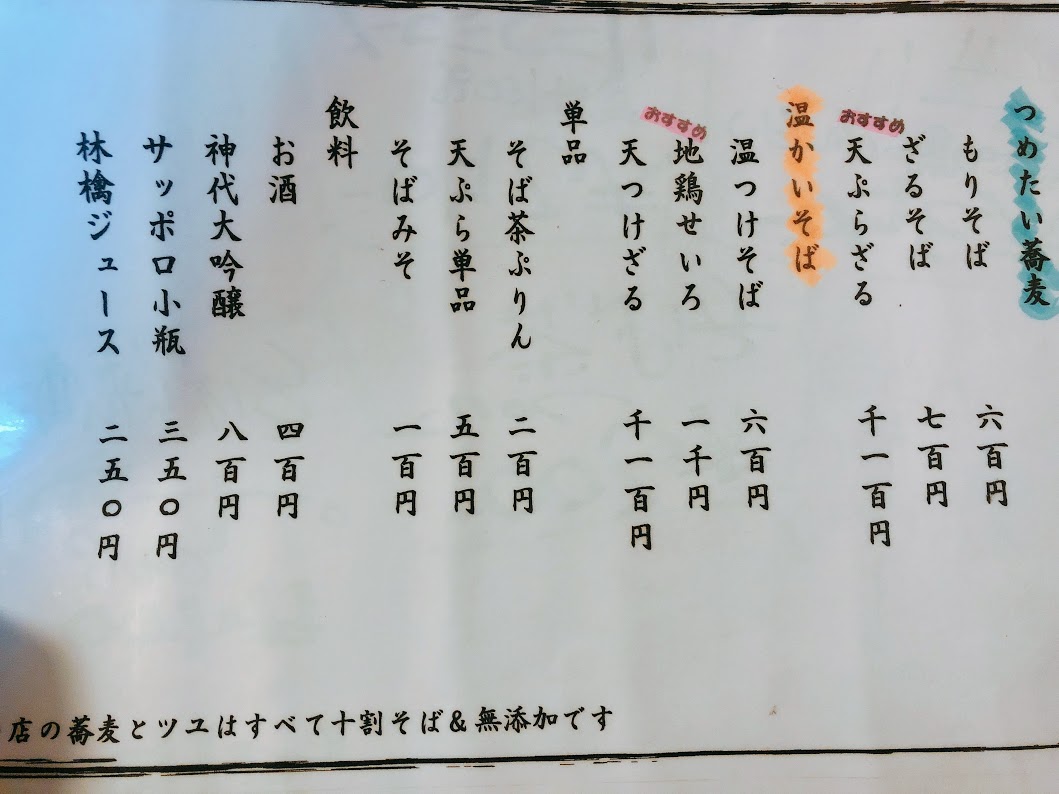 つめたい蕎麦
もりそば 六百円
ざるそば 七百円
おすすめ
天ぷらざる 千一百円
温かいそば
温つけそば 六百円
おすすめ
地鶏せいろ 一千円
天つけざる 千一百円
単品
そば茶ぷりん 二百円
天ぷら単品 五百円
そばみそ 一百円
飲料
お酒 四百円
神代大吟醸 八百円
サッポロ小瓶 三五〇円
林檎ジュース 二五〇円
店の蕎麦とツユはすべて十割そば&無添加です